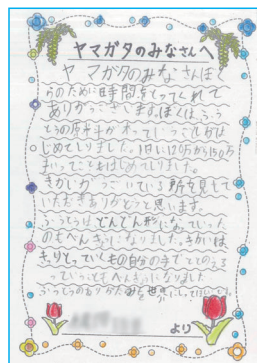 ヤマガタのみなさんへ
ヤマガタのみなさんぼく
らのために時間をとってくれて
ありがとうございます。ぼくは、ふう
とうの
はじめてしりました。1日に120万から150万
まいつくることをはじめてしりました。
きかいがうごいている所を見せて
いただきありがとうと思います。
ふうとうはどんどん形になっていった
のもべんきょうになりました。きかいは、
きりとっていくもの自分の手でととのえる
っていうこともべんきょうになりました
より